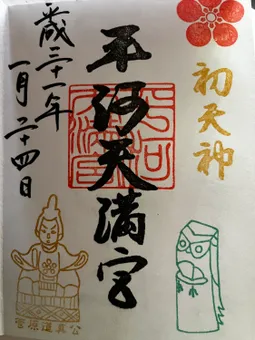 初天神
平河天満宮
平成三十一年
一月二十四日
菅原道真公